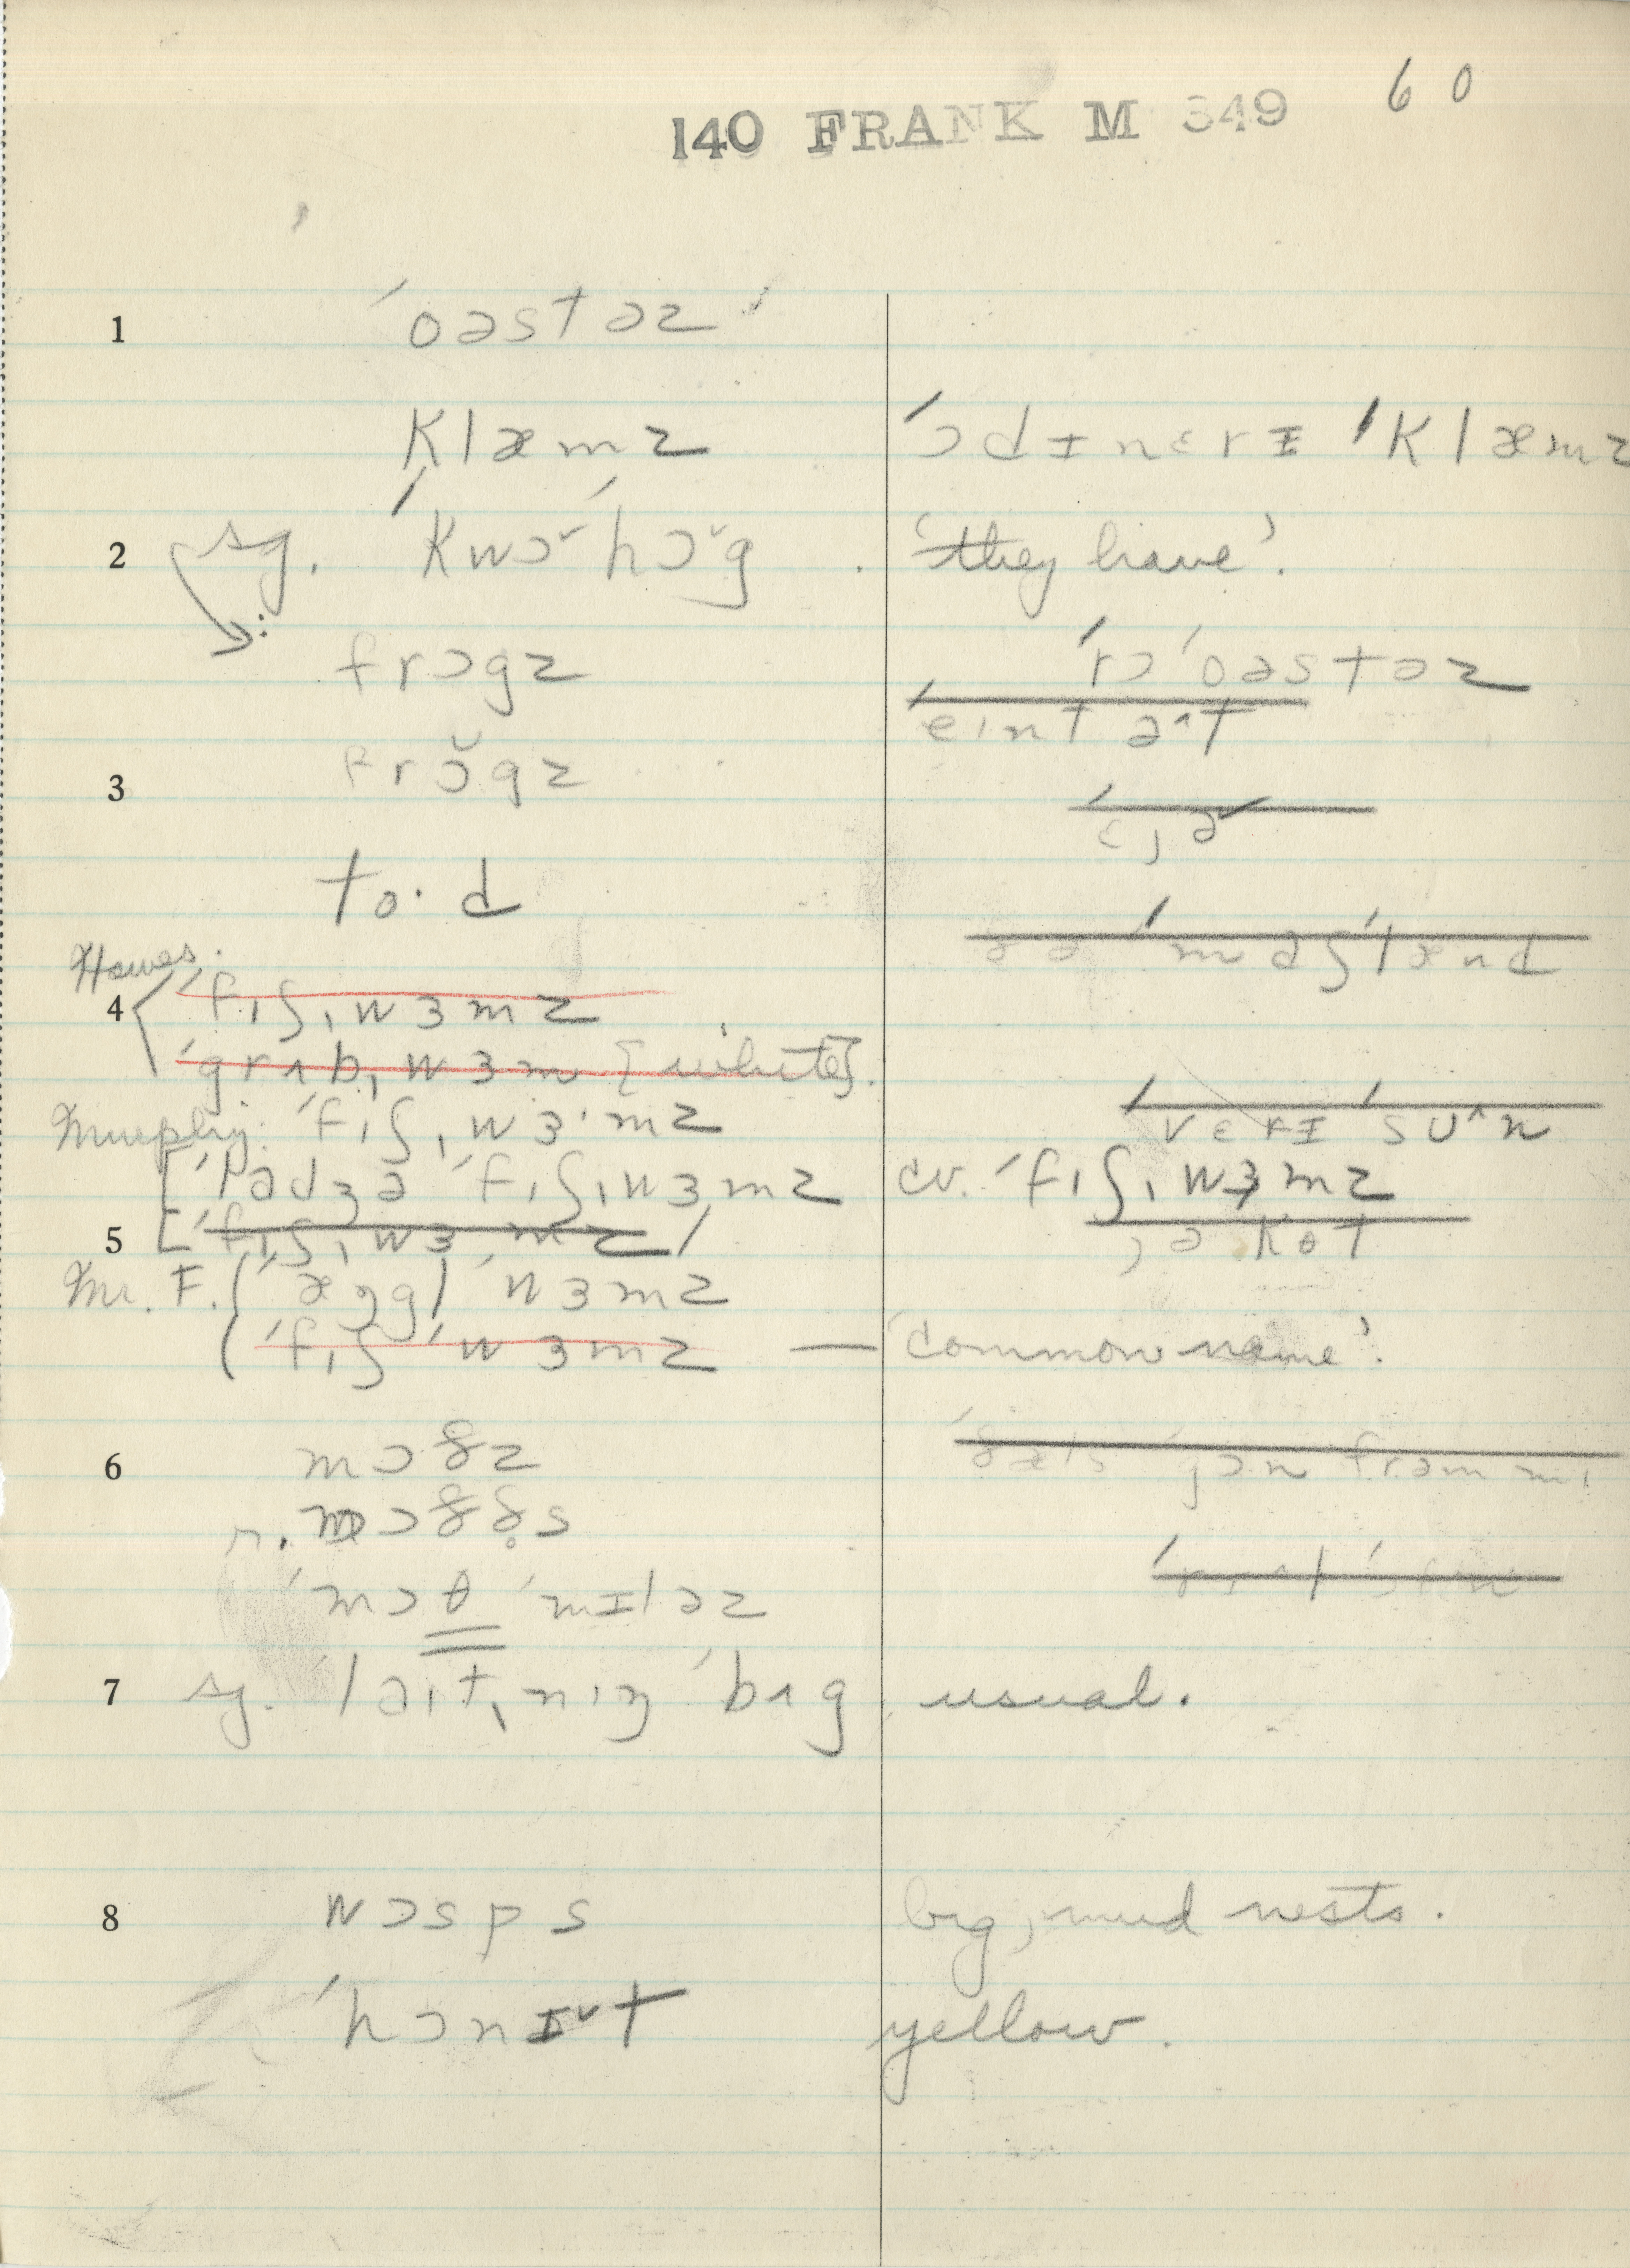 140 FRANK M 349 60
1 ˈoəstəz
klæmz ˈɔdɪnɛrɪ ˈklæmz
2 sg. ˈkwɔ˅ˈhɔ˅g . 'they have'.
frɔgz ˈrɔˈoəstəz
eint ə^t
3 frɔ̆gz
to·d
Hawes.
4 ˈfɪʃˌwɜmz
ˈgrʌbˌwɜm [white].
Murphy: ˈfɪʃˌwɜ·mz ˈvɛrɪ ˈsu^n
[ˈladʒə ˈfɪʃˌwɜmz cv. ˈfɪʃˌwɜmz
5 [ˈfɪʃˌwɜmz
Mr. F. (ˈæŋglˈwɜmz
(ˈfɪʃˈwɜmz — 'common name'.
6 mɔðz
r. mɔðð̥s
ˈmɔθ ˈmɪləz
7 sg. ˈlaɪtˌnɪŋ ˈbʌg usual.
8 wɔsps big, mud nests.
ˈhɔnɪ˅t yellow.